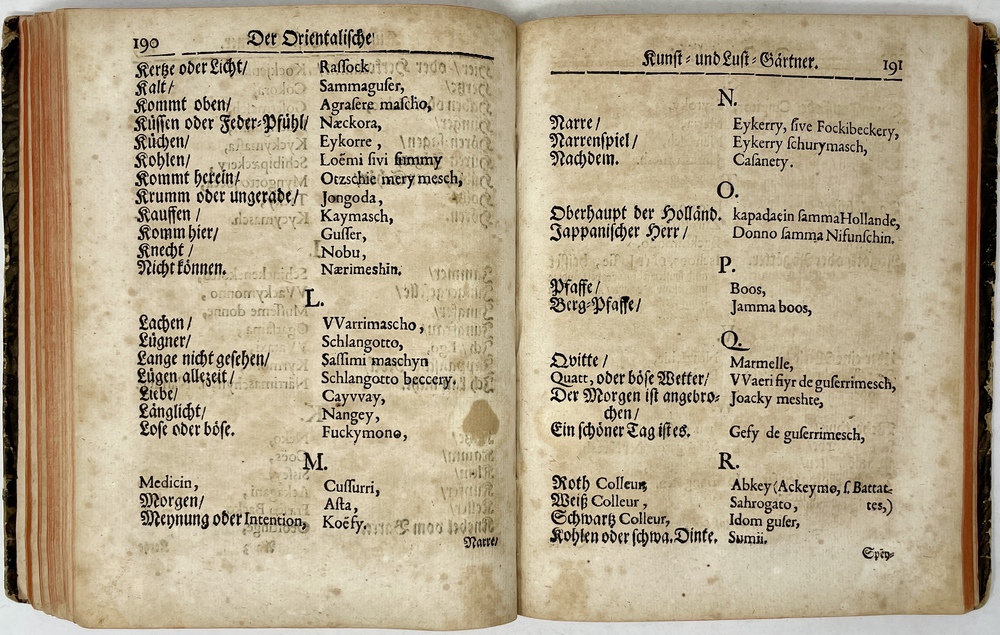 190 Der Orientalische
Kertze oder Licht/ Raſſock
Kalt/ Sammaguſer,
Kommt oben/ Agraſere maſcho,
Küſſen oder Feder-Pfühl/ Næckora,
Küchen/ Eykorre,
Kohlen/ Loëmi ſivi ſimmy
Kommt herein/ Otzschie mery mesch,
Krumm oder ungerade/ Jongoda,
Kauffen/ Kaymasch,
Komm hier/ Guſſer,
Knecht/ Nobu,
Nicht können. Nærimeshin.
L.
Lachen/ VVarrimascho,
Lügner/ Schlangotto,
Lange nicht geſehen/ Saſſimi maschyn
Lügen allezeit/ Schlangotto beccery.
Liebe/ Cayvvay,
Länglicht/ Nangey,
Loſe oder böſe. Fuckymono,
M.
Medicin, Cuſſurri,
Morgen/ Aſta,
Meynung oder Intention, Koëſy.
Narre/
Kunſt- und Luſt-Gärtner. 191
N.
Narre/ Eykerry, ſive Fockibeckery,
Narrenſpiel/ Eykerry ſchurymasch,
Nachdem. Caſanety.
O.
Oberhaupt der Holländ. kapadaein ſamma Hollande,
Jappaniſcher Herr/ Donno ſamma Nifunſchin.
P.
Pfaffe/ Boos,
Berg-Pfaffe/ Jamma boos,
Q.
Qvitte/ Marmelle,
Quatt, oder böſe Wetter/ VVaeri fiyr de guſerrimesch,
Der Morgen iſt angebro- Joacky meshte,
chen/
Ein ſchöner Tag iſt es. Gefy de guſerrimesch,
R.
Roth Colleur, Abkey (Ackeymo, ſ. Battat-
Weiß Colleur, Sahrogato, tes,)
Schwartz Colleur, Idom guſer,
Kohlen oder ſchwa. Dinte. Sumii.
Spey-